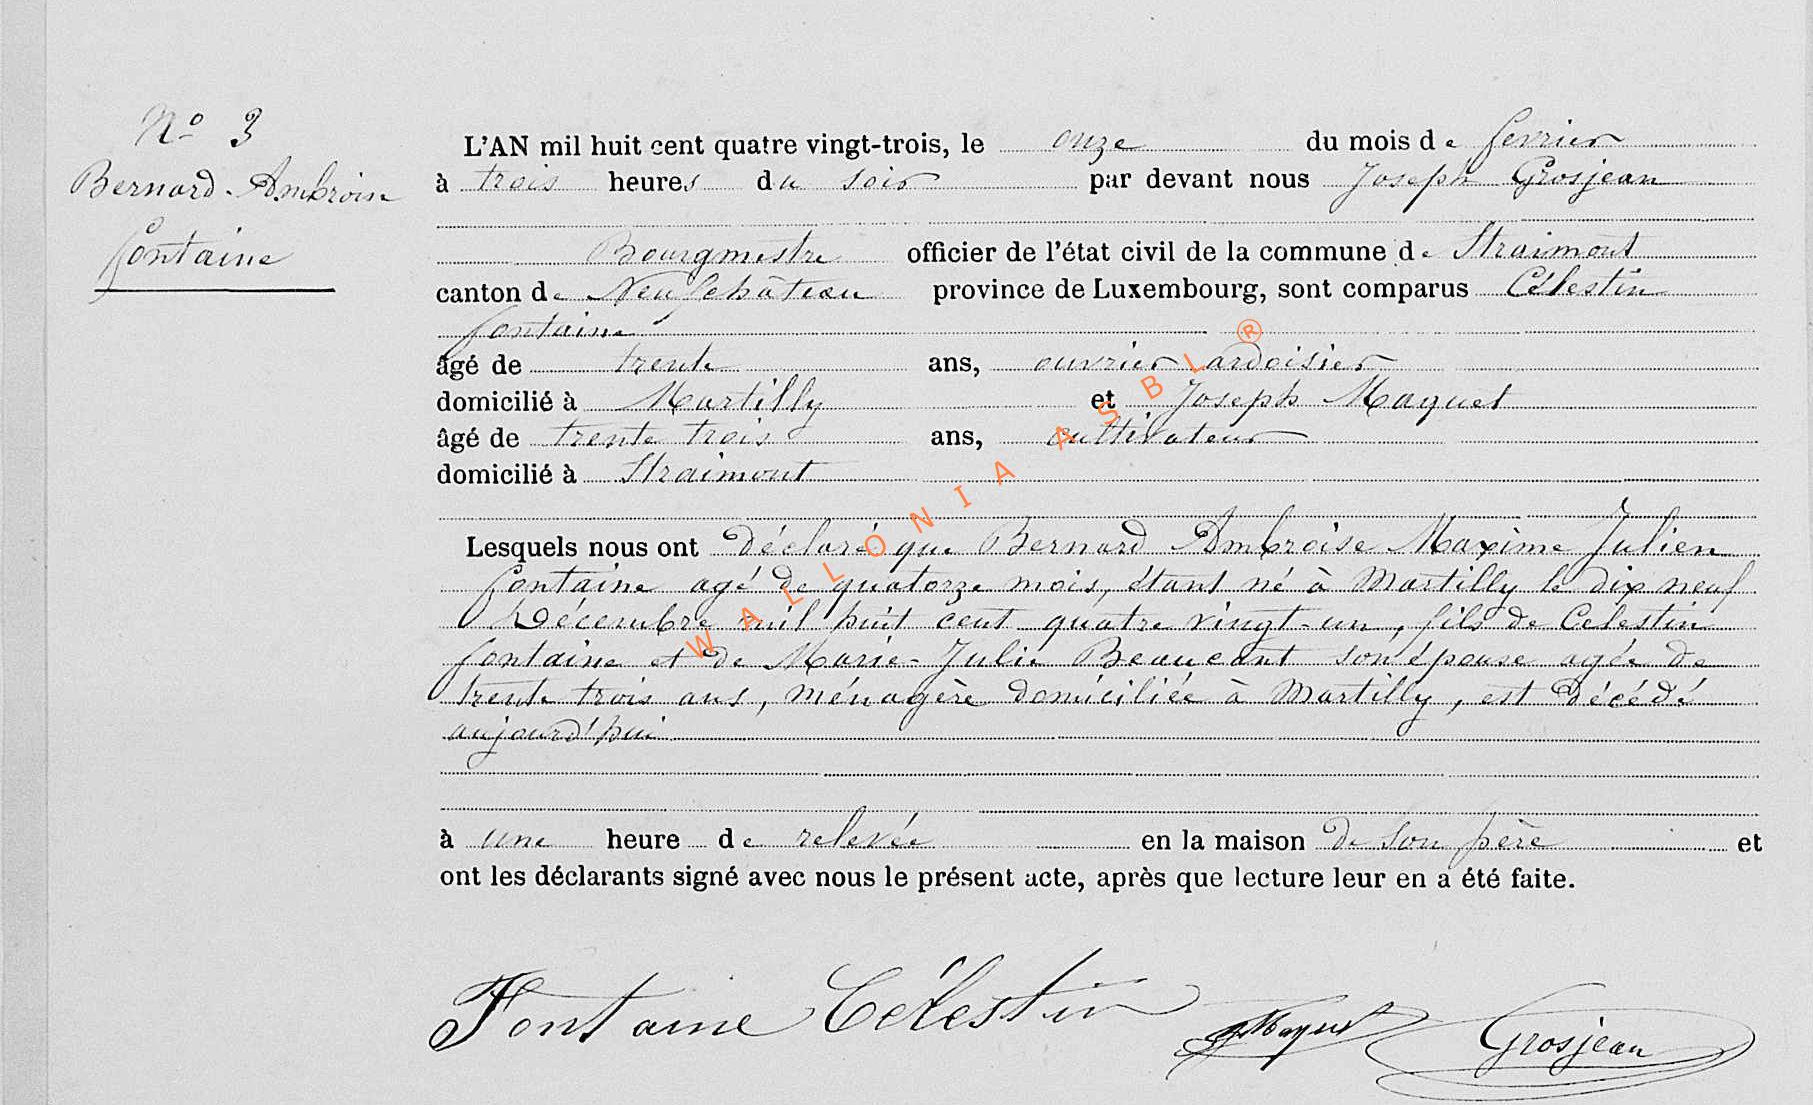 Nº 3
Bernard-Ambroise
Fontaine
L'AN mil huit cent quatre vingt-trois, le onze du mois de fevrier
à trois heures du soir par devant nous Joseph Grosjean
Bourgmestre officier de l'état civil de la commune de Straimont
canton de Neufchâteau province de Luxembourg, sont comparus Célestin
Fontaine
âgé de trente ans, ouvrier ardoisier
domicilié à Martilly et Joseph Maquet
âgé de trente trois ans, cultivateur
domicilié à Straimont
Lesquels nous ont déclaré que Bernard Ambroise Maxime Julien
Fontaine agé de quatorze mois, étant né à Martilly le dix neuf
Décembre mil huit cent quatre vingt-un, fils de Celestin
Fontaine et de Marie-Julie Beaucant son épouse agée de
trente trois ans, ménagère domiciliée à Martilly, est décédé
aujourd'hui
à une heure de relevée en la maison de son père et
ont les déclarants signé avec nous le présent acte, après que lecture leur en a été faite.
Fontaine Célestin J Maquet Grosjean
WALLONIA ASBL ®